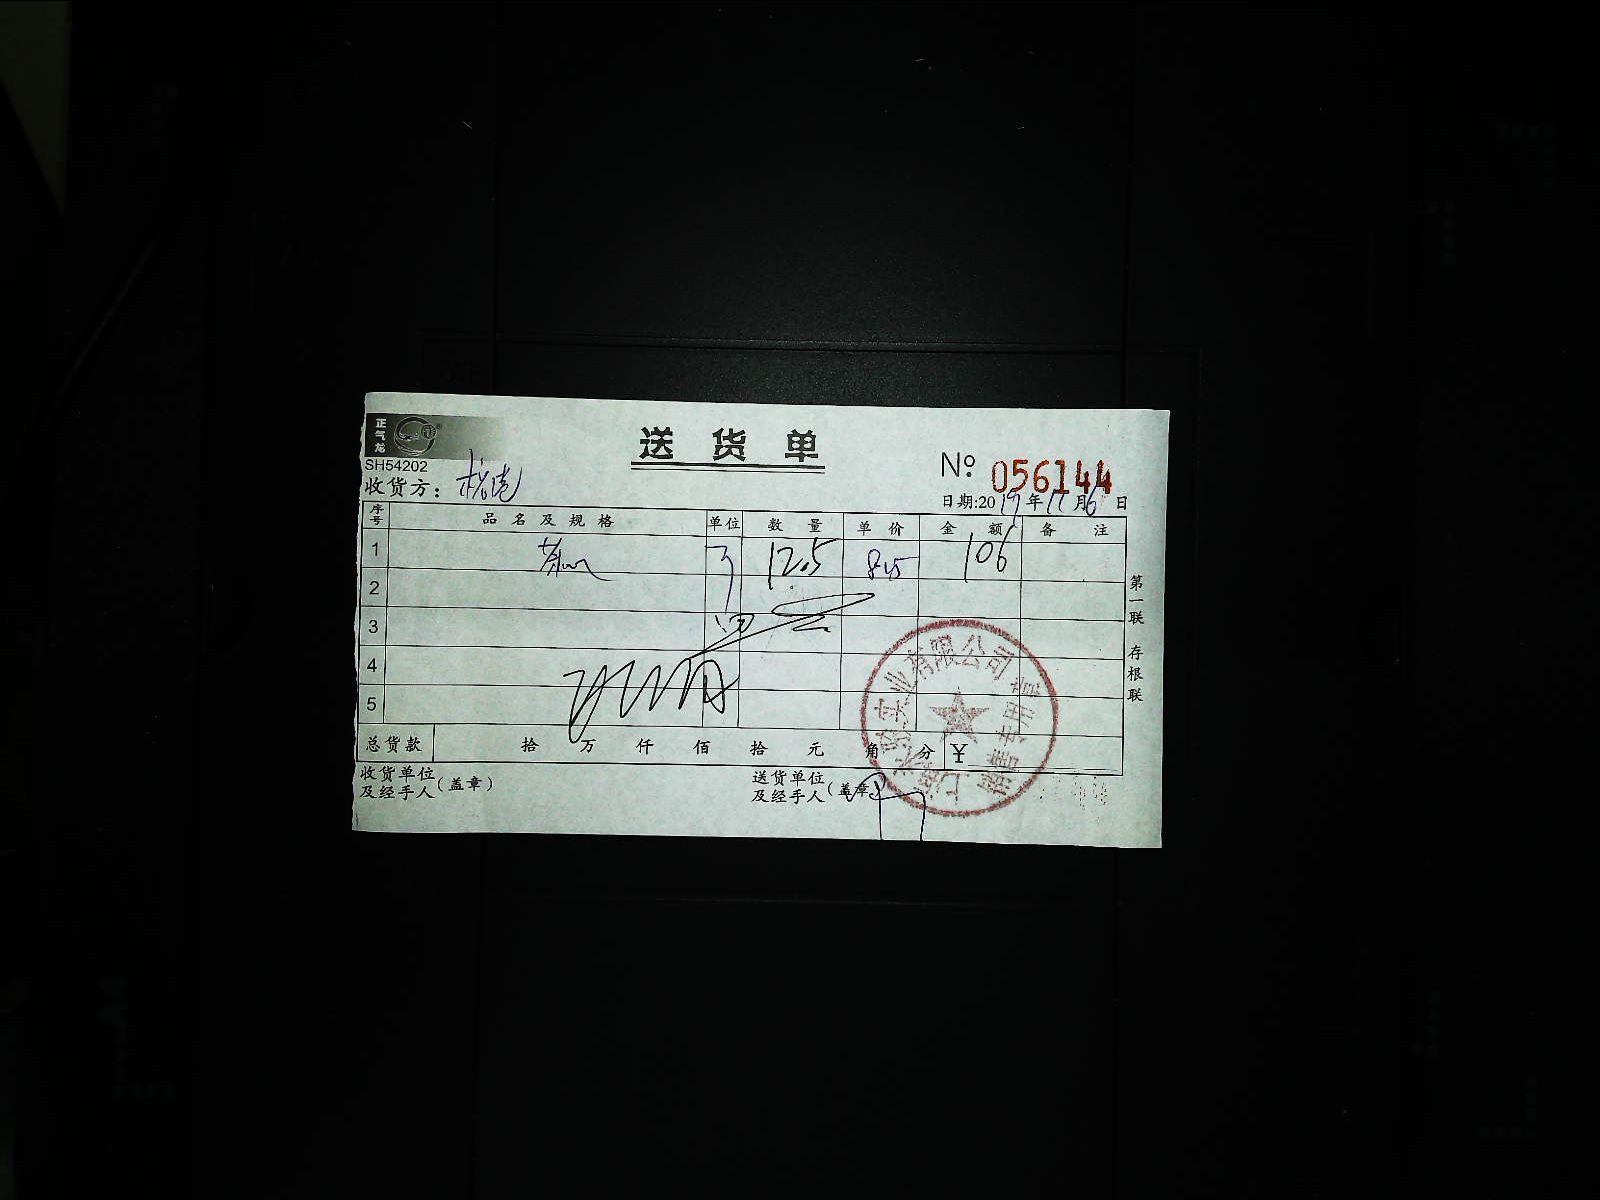 正气龙
送货单
SH54202
№ 056144
收货方：
日期:2019年11月6日
序号 品名及规格 单位 数量 单价 金额 备注
1 12.5 8.5 106
2
3
4
5
第一联 存根联
总货款 拾 万 仟 佰 拾 元 角 分 ¥
收货单位及经手人（盖章）
送货单位及经手人（盖章）
实业有限公司